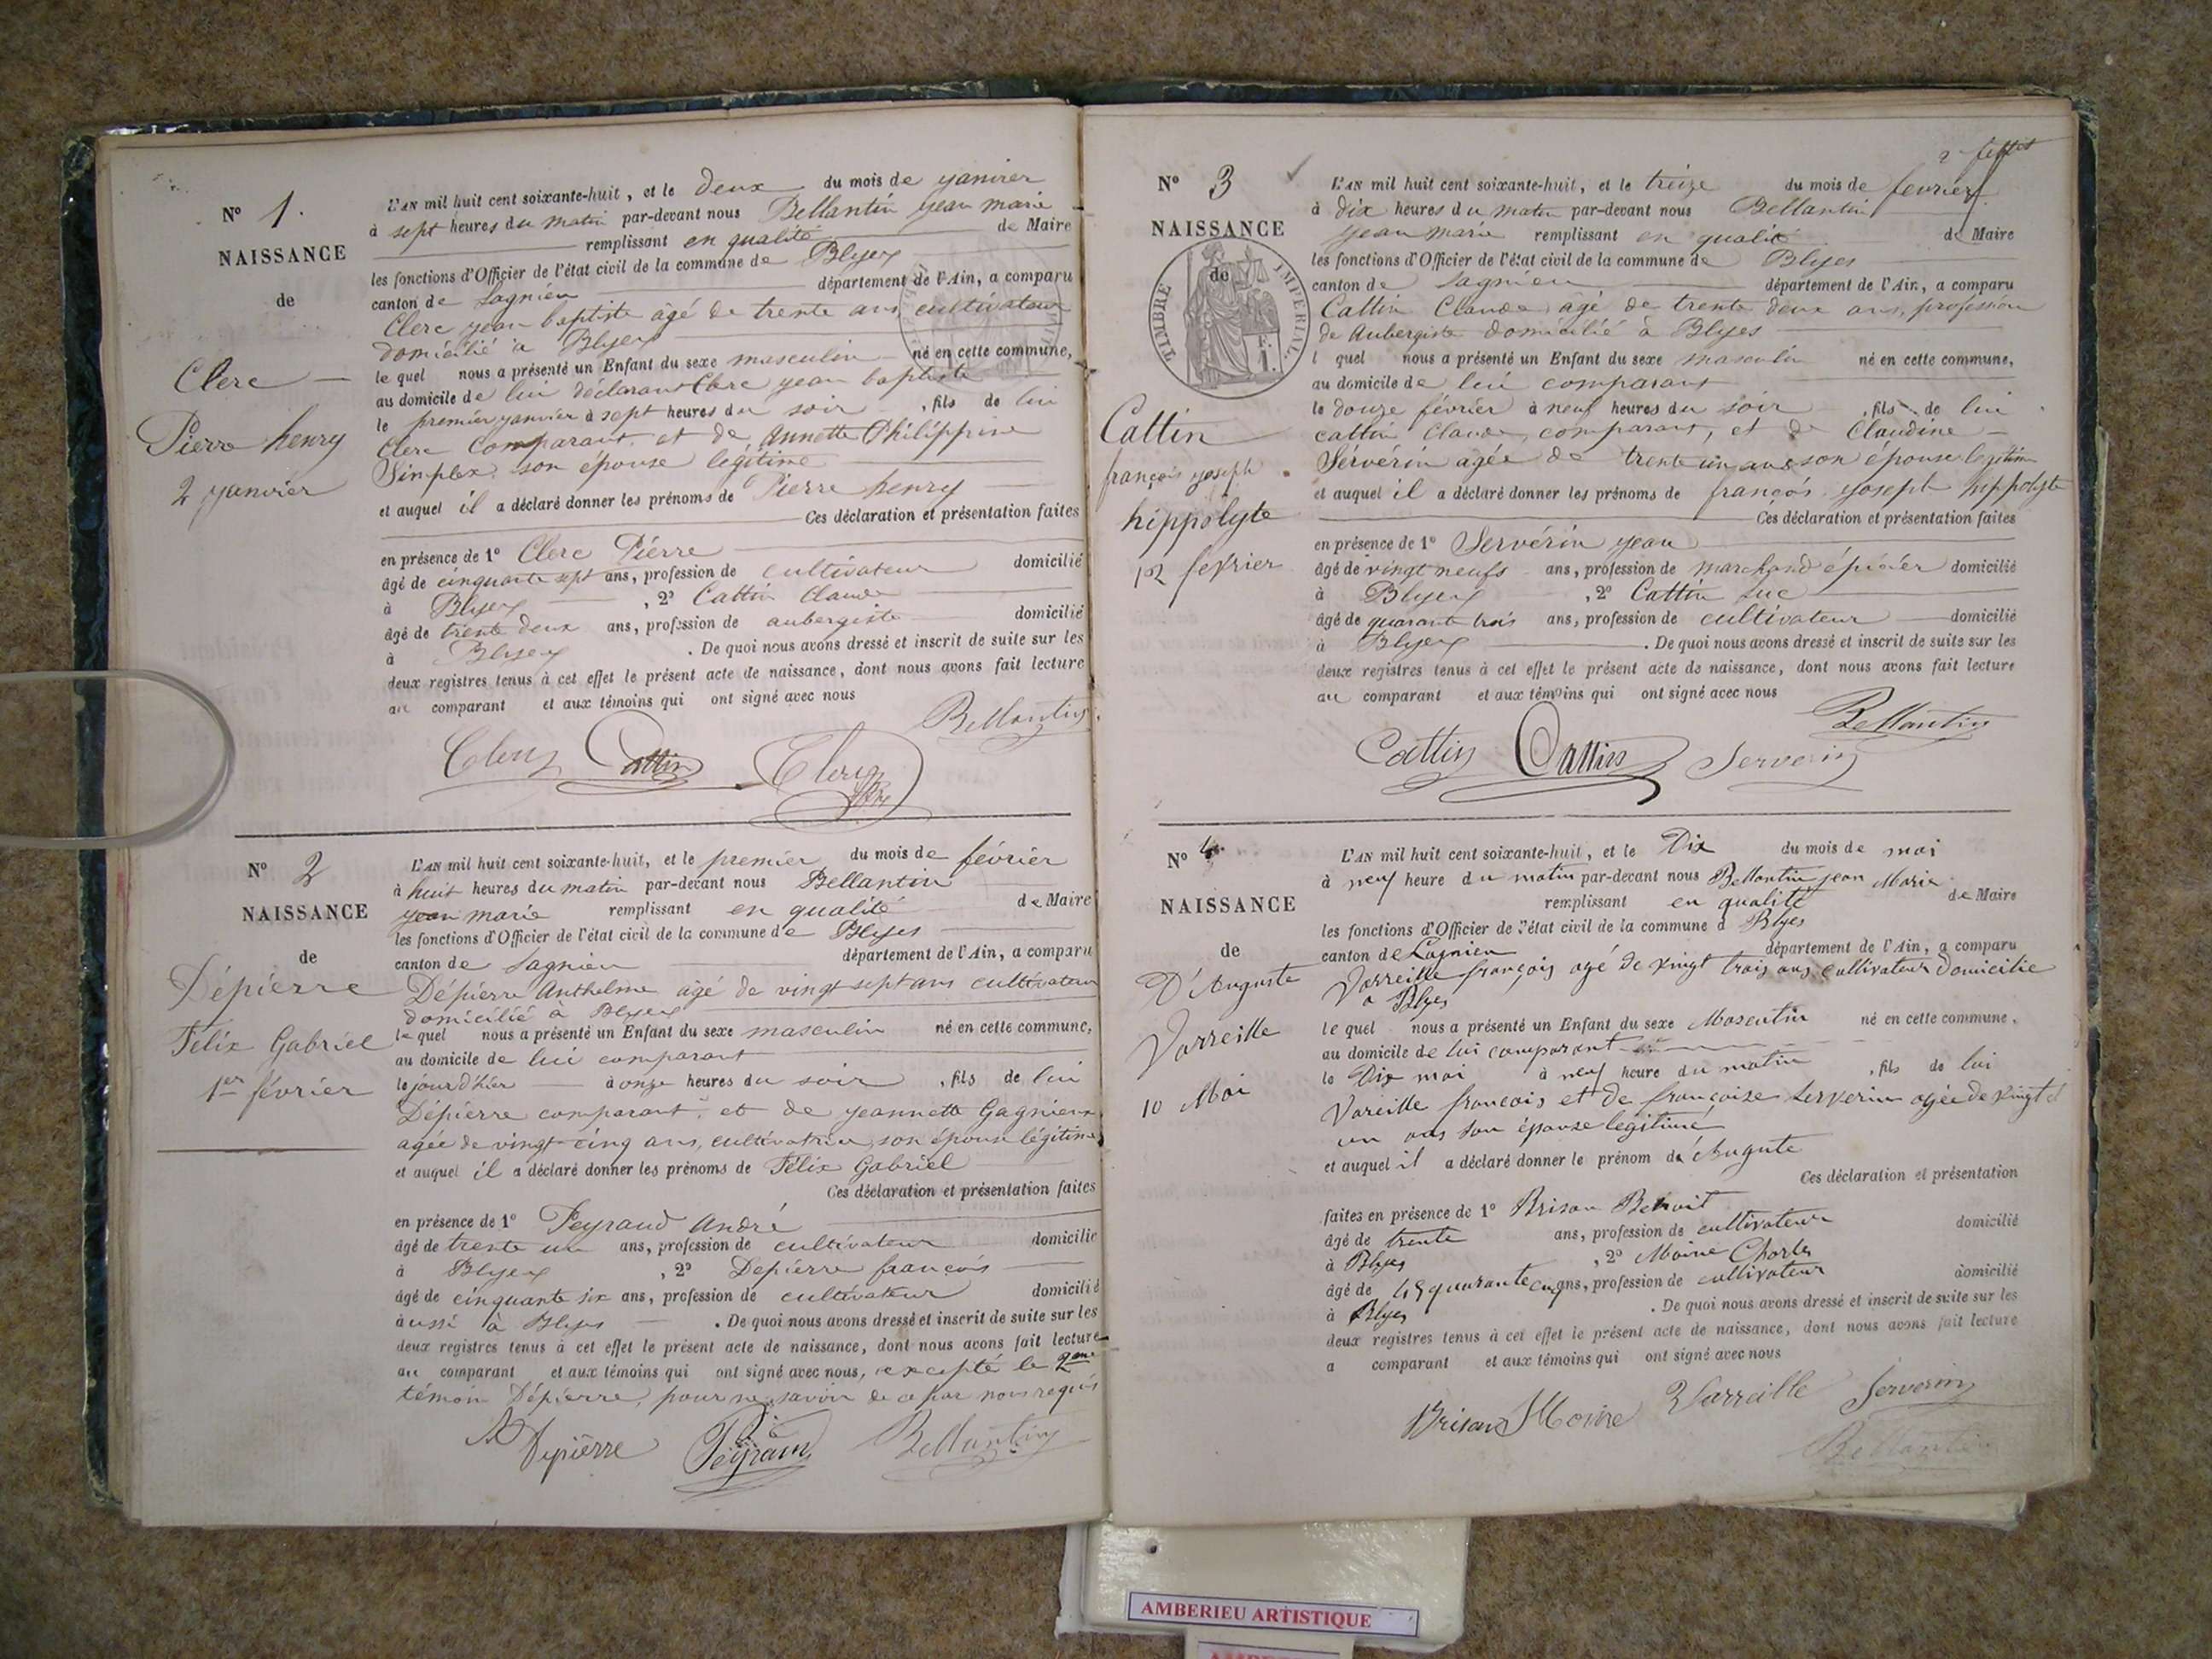 N° 1.
NAISSANCE
de
Clerc
Pierre henry
2 yanvier
L'AN mil huit cent soixante-huit, et le deux du mois de yanvier
à sept heures du matin par-devant nous Bellantin yean marie
remplissant en qualité de Maire
les fonctions d'Officier de l'état civil de la commune de Blyes
canton de Lagnieu département de l'Ain, a comparu
Clerc yean baptiste agé de trente ans, cultivateur
domicilié à Blyes
le quel nous a présenté un Enfant du sexe masculin né en cette commune,
au domicile de lui déclarant Clerc yean baptiste
le premier yanvier à sept heures du soir, fils de lui
Clerc Comparant, et de Annette Philippine
Simplex son épouse legitime
et auquel il a déclaré donner les prénoms de Pierre henry
Ces déclaration et présentation faites
en présence de 1° Clerc Pierre
âgé de cinquante sept ans, profession de cultivateur domicilié
à Blyes, 2° Cattin Claude
âgé de trente deux ans, profession de aubergiste domicilié
à Blyes. De quoi nous avons dressé et inscrit de suite sur les
deux registres tenus à cet effet le présent acte de naissance, dont nous avons fait lecture
au comparant et aux témoins qui ont signé avec nous
Bellantin
Clerc Cattin Clerc
N° 2
NAISSANCE
de
Dépierre
Félix Gabriel
1er février
L'AN mil huit cent soixante-huit, et le premier du mois de février
à huit heures du matin par-devant nous Bellantin
yean marie remplissant en qualité de Maire
les fonctions d'Officier de l'état civil de la commune de Blyes
canton de Lagnieu département de l'Ain, a comparu
Dépierre Anthelme agé de vingt sept ans cultivateur
domicilié à Blyes
le quel nous a présenté un Enfant du sexe masculin né en cette commune,
au domicile de lui comparant
le jour d'hier à onze heures du soir, fils de lui
Dépierre comparant, et de yeannette Gagnieux
agée de vingt-cinq ans, cultivatrice, son épouse légitime
et auquel il a déclaré donner les prénoms de Félix Gabriel
Ces déclaration et présentation faites
en présence de 1° Peyraud André
âgé de trente un ans, profession de cultivateur domicilié
à Blyes, 2° Depierre françois
âgé de cinquante six ans, profession de cultivateur domicilié
aussi à Blyes. De quoi nous avons dressé et inscrit de suite sur les
deux registres tenus à cet effet le présent acte de naissance, dont nous avons fait lecture
au comparant et aux témoins qui ont signé avec nous, excepté le 2me
témoin Dépierre, pour ne savoir de ce par nous requis
Depierre Peyraud Bellantin
N° 3
NAISSANCE
de
TIMBRE IMPERIAL
Cattin
françois yoseph
hippolyte
12 fevrier
L'AN mil huit cent soixante-huit, et le treize du mois de fevrier
à dix heures du matin par-devant nous Bellantin
yean marie remplissant en qualité de Maire
les fonctions d'Officier de l'état civil de la commune de Blyes
canton de Lagnieu département de l'Ain, a comparu
Cattin Claude, agé de trente deux ans, profession
de Aubergiste domicilié à Blyes
l quel nous a présenté un Enfant du sexe masculin né en cette commune,
au domicile de lui comparant
le douze février à neuf heures du soir, fils de lui
cattin Claude, comparant, et de Claudine
Sérvérin agée de trente un ans son épouse legitime
et auquel il a déclaré donner les prénoms de françois yoseph hippolyte
Ces déclaration et présentation faites
en présence de 1° Servérin yean
âgé de vingt neufs ans, profession de marchand épicier domicilié
à Blyes, 2° Cattin Luc
âgé de quarante trois ans, profession de cultivateur domicilié
à Blyes. De quoi nous avons dressé et inscrit de suite sur les
deux registres tenus à cet effet le présent acte de naissance, dont nous avons fait lecture
au comparant et aux témoins qui ont signé avec nous
Bellantin
Cattin Cattin Serverin
N° 4.
NAISSANCE
de
D'Auguste
Varreille
10 Mai
L'AN mil huit cent soixante-huit, et le Dix du mois de mai
à neuf heure du matin par-devant nous Bellantin jean Marie
remplissant en qualité de Maire
les fonctions d'Officier de l'état civil de la commune d Blyes
canton de Lagnieu département de l'Ain, a comparu
Varreille françois agé de vingt trois ans cultivateur domicilie
a Blyes
le quel nous a présenté un Enfant du sexe Masculin né en cette commune.
au domicile de lui comparant
le Dix mai à neuf heure du matin, fils de lui
Vareille francois et de françoise Serverin agée de vingt et
un ans son épouse legitime
et auquel il a déclaré donner le prénom de Auguste
Ces déclaration et présentation
faites en présence de 1° Brison Benoit
âgé de trente ans, profession de cultivateur domicilié
à Blyes, 2° Moine Charles
âgé de 45 quarante cinq ans, profession de cultivateur domicilié
à Blyes. De quoi nous avons dressé et inscrit de suite sur les
deux registres tenus à cet effet le présent acte de naissance, dont nous avons fait lecture
a comparant et aux témoins qui ont signé avec nous
Brison Moine Varreille Serverin
Bellantin
AMBERIEU ARTISTIQUE